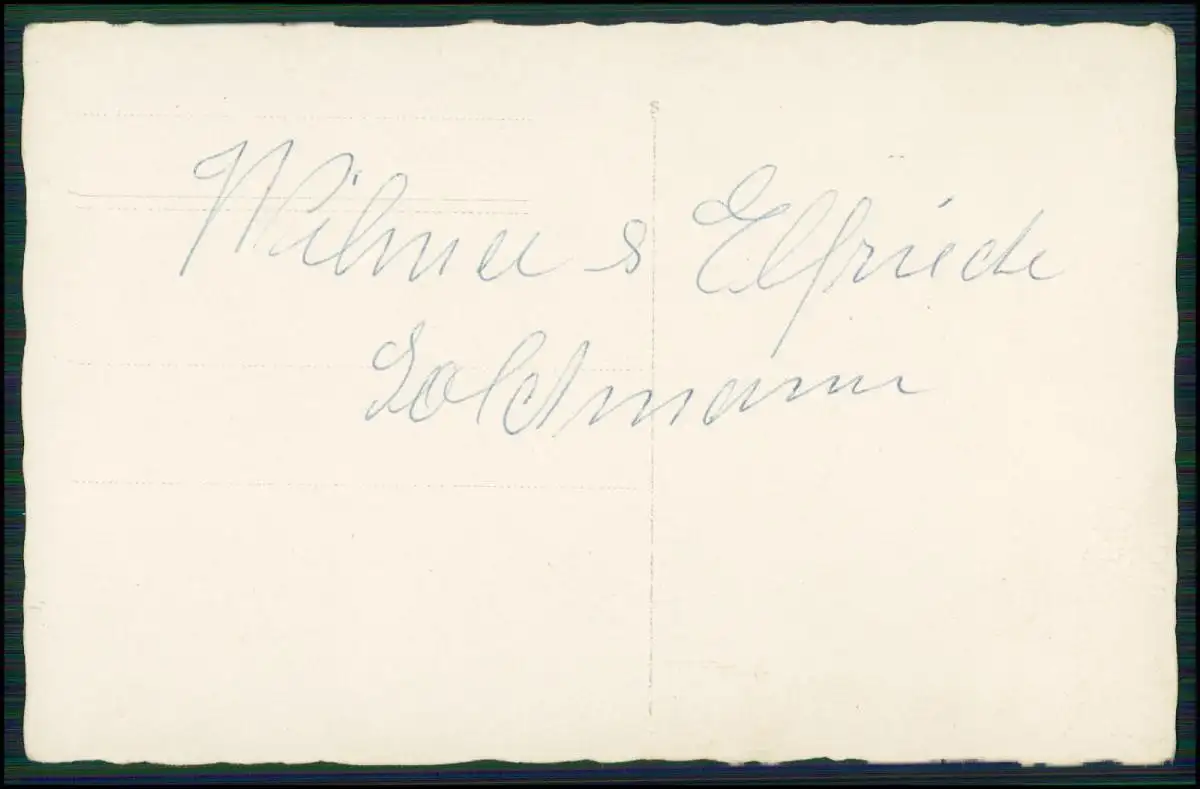 Wilmer & Elfriede
Goldmann